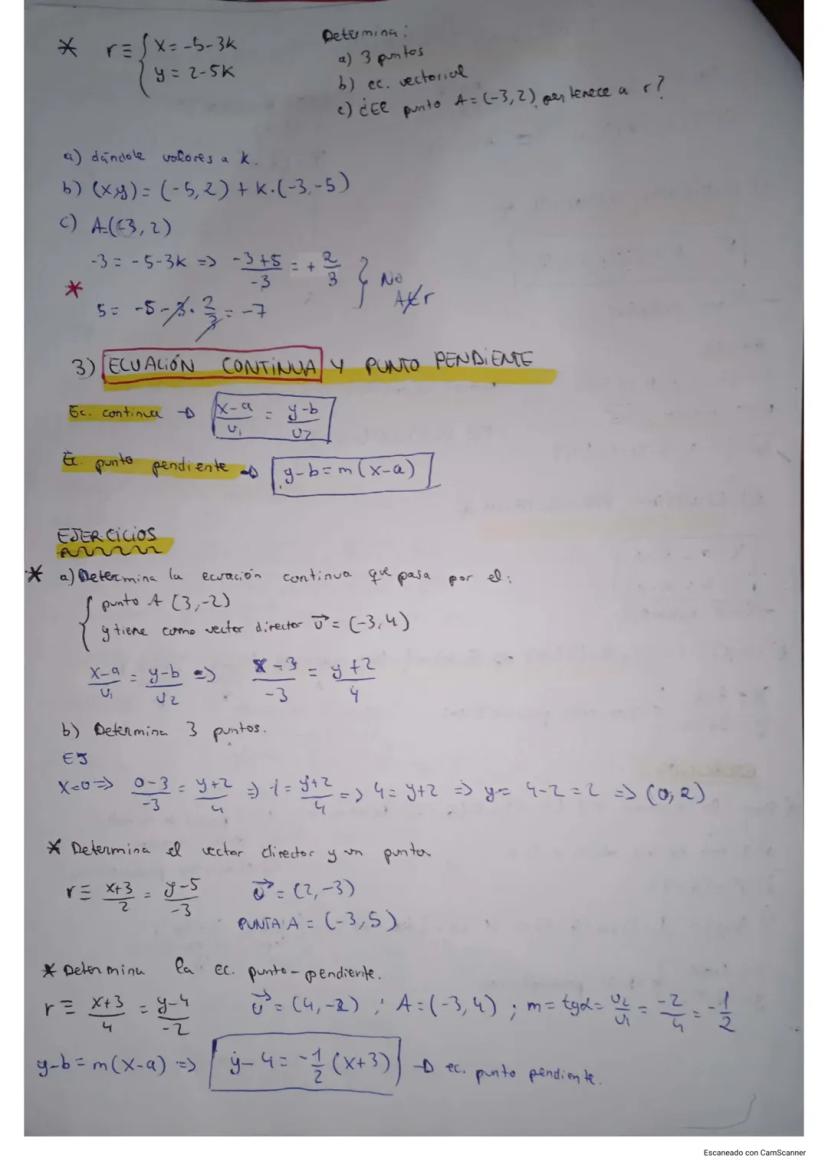 * r ≡ { x = -5-3k
y = 2-5k
Determina:
a) 3 puntos
b) ec. vectorial
c) ¿El punto A = (-3,2) pertenece a r?
a) dándole valores a k.
b) (x,y) = (-5,2) + k·(-3,-5)
c) A(-3,2)
-3 = -5-3k => (-3+5)/-3 = + 2/3 } No
* 5 = -5-3·2/3 = -7 A∉r
3) ECUACIÓN CONTINUA Y PUNTO PENDIENTE
Ec. continua → (x-a)/v₁ = (y-b)/v₂
Ec punto pendiente → y-b = m(x-a)
EJERCICIOS
* a) Determina la ecuación continua que pasa por el:
{ punto A (3,-2)
y tiene como vector director v⃗ = (-3,4)
(x-a)/v₁ = (y-b)/v₂ => (x-3)/-3 = (y+2)/4
b) Determina 3 puntos.
EJ
x=0 => (0-3)/-3 = (y+2)/4 => 1 = (y+2)/4 => 4 = y+2 => y = 4-2 = 2 => (0,2)
* Determina el vector director y un punto
r ≡ (x+3)/2 = (y-5)/-3 v⃗ = (2,-3)
PUNTA A = (-3,5)
* Determina la ec. punto-pendiente.
r ≡ (x+3)/4 = (y-4)/-2 v⃗ = (4,-2) ; A = (-3,4) ; m = tgα = v₂/v₁ = -2/4 = -1/2
y-b = m(x-a) => y-4 = -1/2 (x+3) → ec. punto pendiente.
Escaneado con CamScanner